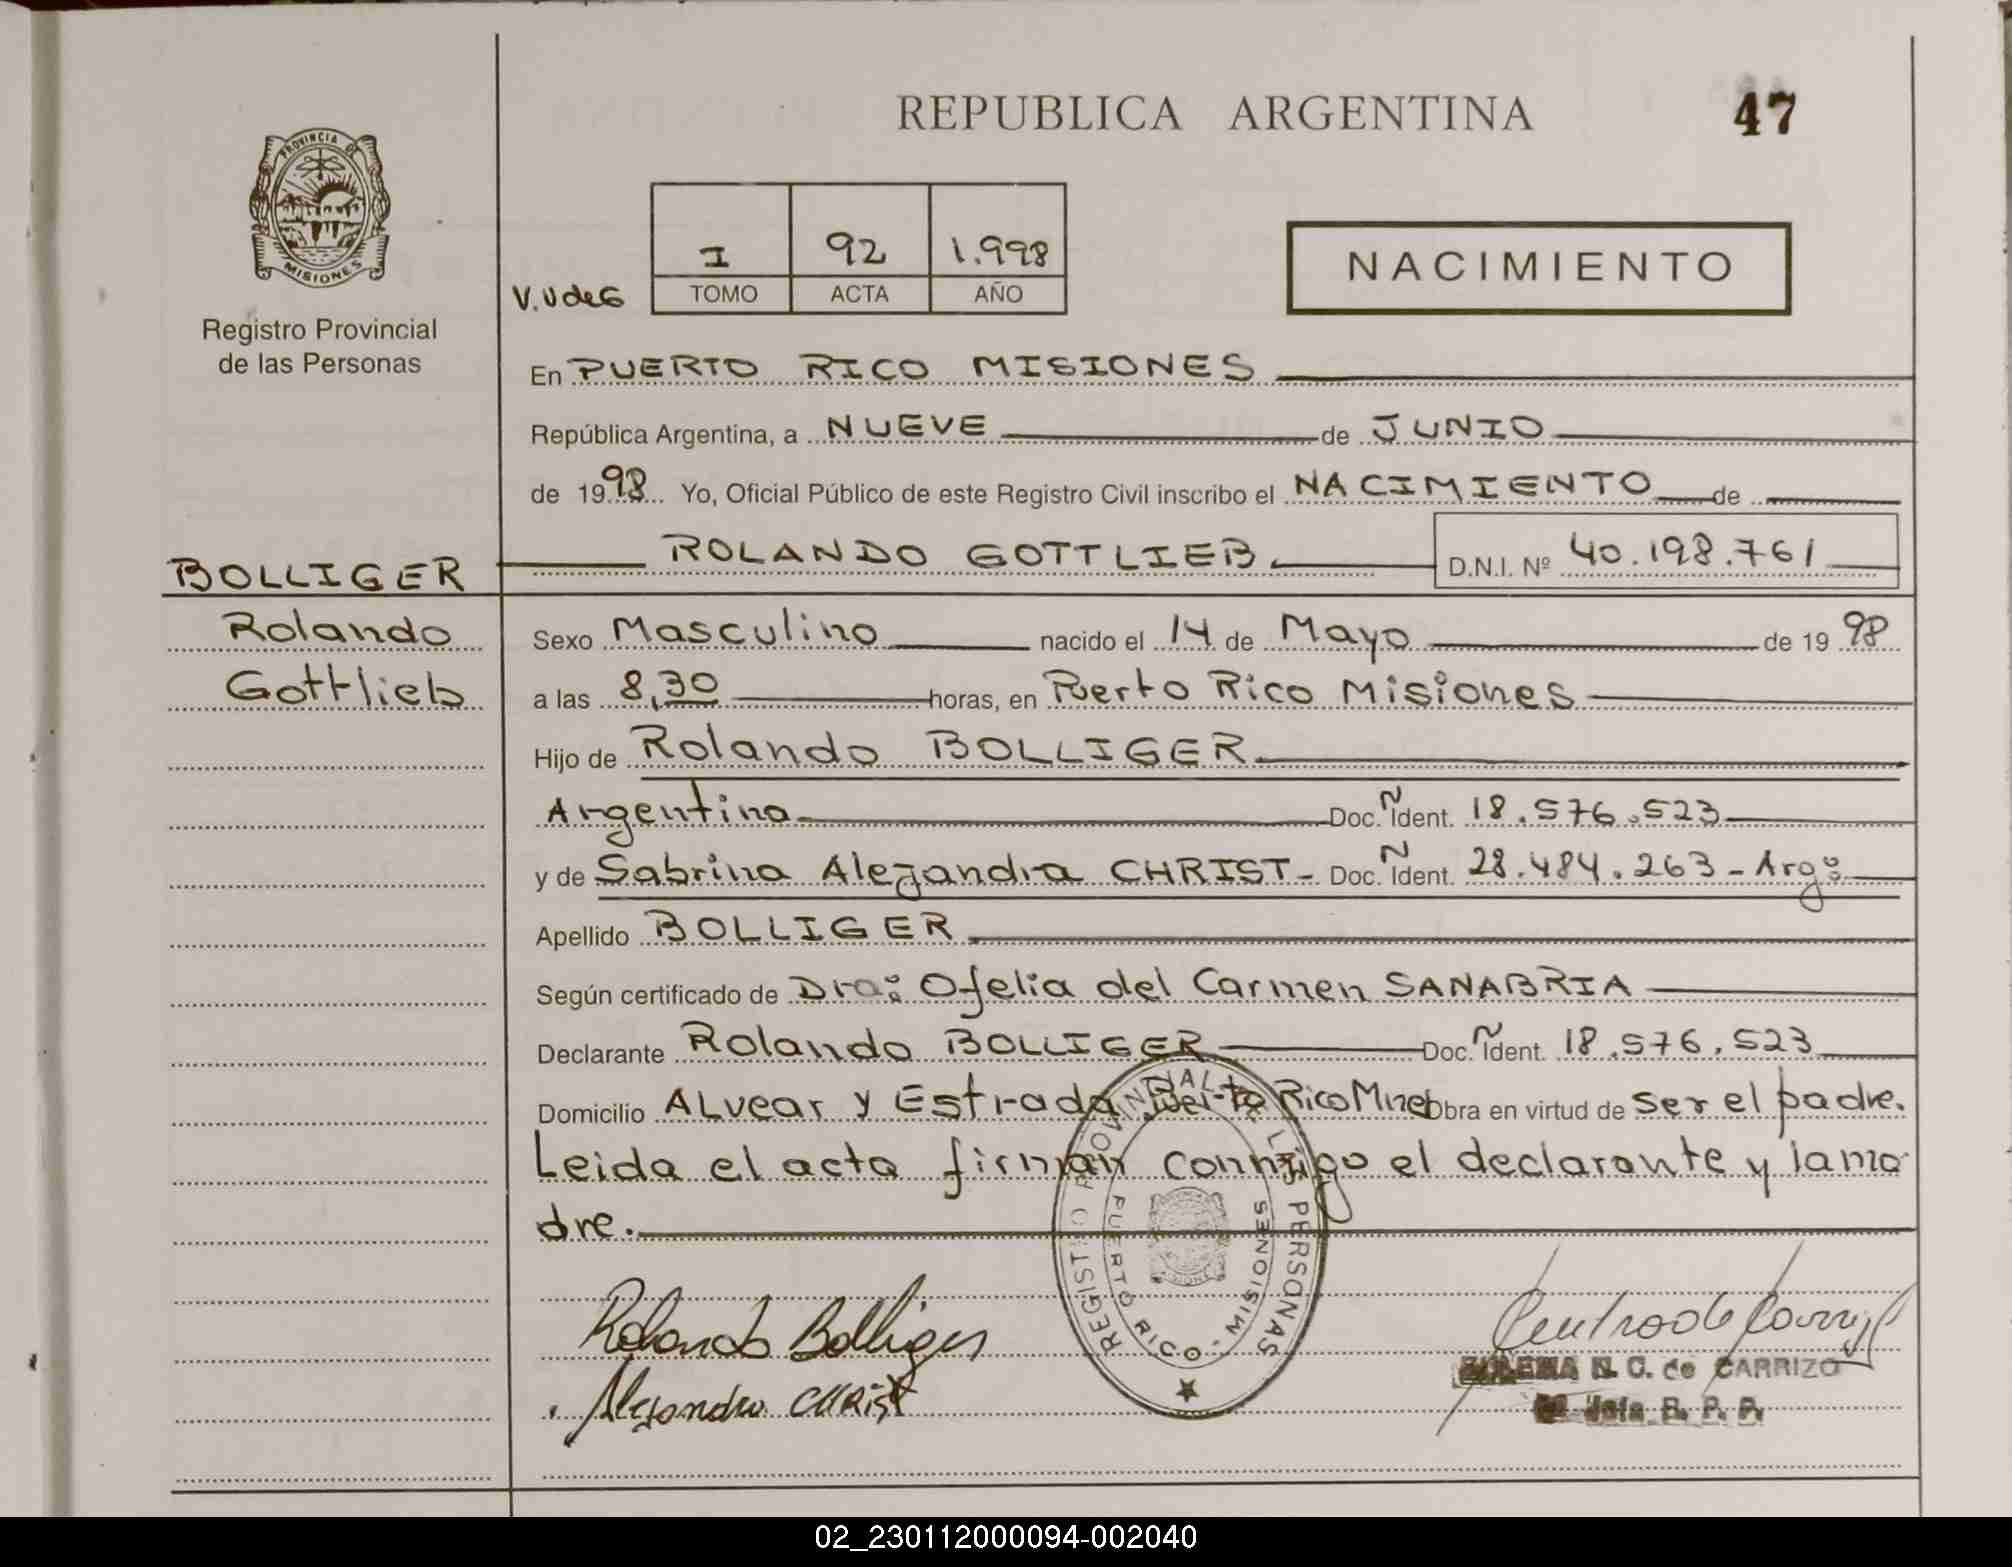 REPUBLICA ARGENTINA
47
PROVINCIA DE
MISIONES
Registro Provincial
de las Personas
V.UdeG
I 92 1.998
TOMO ACTA AÑO
NACIMIENTO
En PUERTO RICO MISIONES
República Argentina, a NUEVE de JUNIO
de 1998 Yo, Oficial Público de este Registro Civil inscribo el NACIMIENTO de
ROLANDO GOTTLIEB D.N.I. Nº 40.198.761
BOLLIGER
Rolando
Gottlieb
Sexo Masculino nacido el 14 de Mayo de 1998
a las 8,30 horas, en Puerto Rico Misiones
Hijo de Rolando BOLLIGER
Argentino Doc. Ñ Ident. 18.576.523
y de Sabrina Alejandra CHRIST- Doc. Ñ Ident. 28.484.263 - Arg:
Apellido BOLLIGER
Según certificado de Dra: Ofelia del Carmen SANABRIA
Declarante Rolando BOLLIGER Doc. Ñ Ident. 18.576.523
Domicilio ALvear y Estrada Puerto Rico Mnes Obra en virtud de ser el padre.
Leida el acta firman conmigo el declarante y la ma
dre.
REGISTRO PROVINCIAL LAS PERSONAS
PUERTO RICO - MISIONES
Rolando Bolliger
Alejandra CHRist
N. C. de CARRIZO
Jefa R. P. P.
02_230112000094-002040